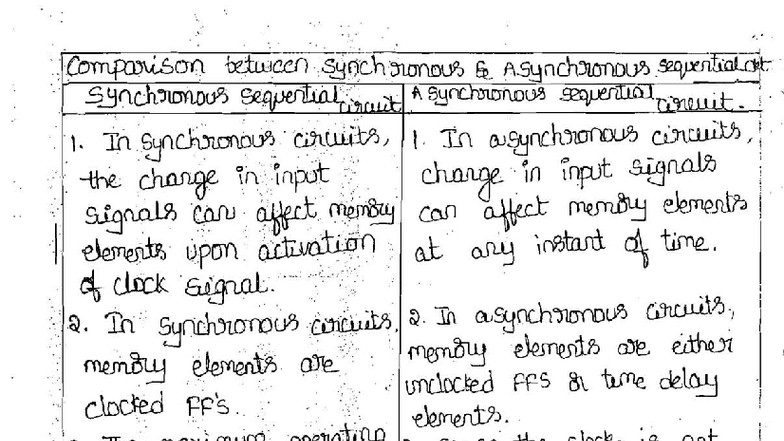 Comparison between synchronous & Asynchronous sequential ckt
Synchronous sequential circuit
Asynchronous sequential circuit.
1. In synchronous circuits,
the change in input
signals can affect memory
elements upon activation
of clock signal.
1. In asynchronous circuits,
change in input signals
can affect memory elements
at any instant of time.
2. In synchronous circuits,
memory elements are
clocked FF's.
2. In asynchronous circuits,
memory elements are either
unclocked FFS or time delay
elements.
maximum operating
the clock is not